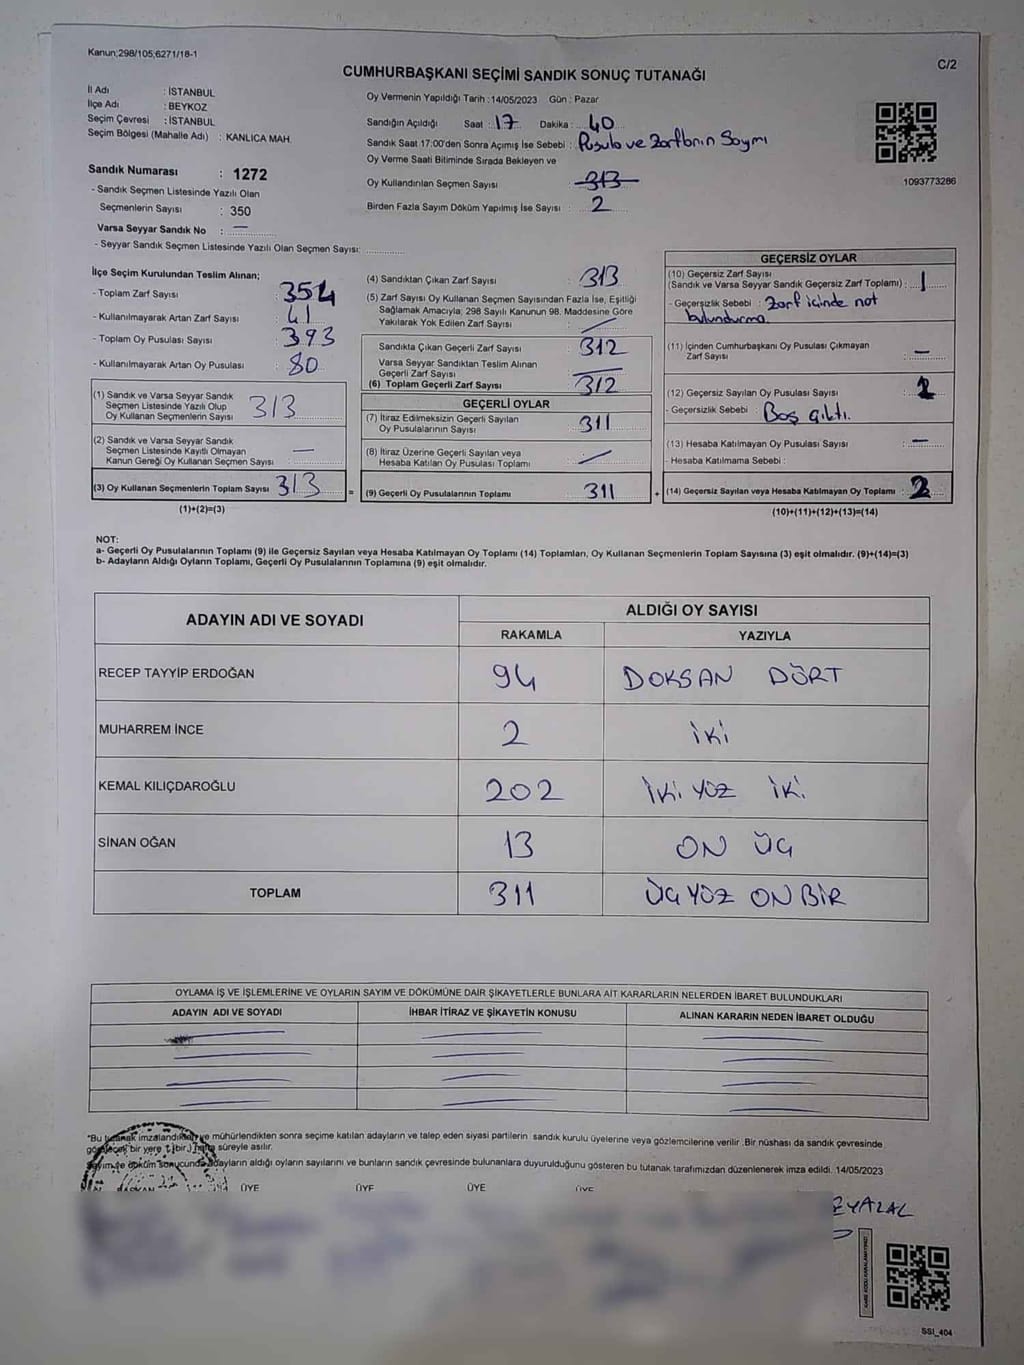 Kanun;298/105;6271/18-1
C/2
CUMHURBAŞKANI SEÇİMİ SANDIK SONUÇ TUTANAĞI
İl Adı : İSTANBUL
İlçe Adı : BEYKOZ
Seçim Çevresi : İSTANBUL
Seçim Bölgesi (Mahalle Adı) : KANLICA MAH.
Oy Vermenin Yapıldığı Tarih :14/05/2023 Gün : Pazar
Sandığın Açıldığı Saat : 17 Dakika : 40
Sandık Saat 17:00'den Sonra Açımış İse Sebebi : Pusula ve Zarfların Sayımı
Oy Verme Saati Bitiminde Sırada Bekleyen ve
Oy Kullandırılan Seçmen Sayısı 313
Birden Fazla Sayım Döküm Yapılmış İse Sayısı : 2
1093773286
Sandık Numarası : 1272
- Sandık Seçmen Listesinde Yazılı Olan
Seçmenlerin Sayısı : 350
Varsa Seyyar Sandık No : —
- Seyyar Sandık Seçmen Listesinde Yazılı Olan Seçmen Sayısı: ............
İlçe Seçim Kurulundan Teslim Alınan;
- Toplam Zarf Sayısı : 354
- Kullanılmayarak Artan Zarf Sayısı : 41
- Toplam Oy Pusulası Sayısı : 393
- Kullanılmayarak Artan Oy Pusulası : 80
(1) Sandık ve Varsa Seyyar Sandık
Seçmen Listesinde Yazılı Olup
Oy Kullanan Seçmenlerin Sayısı 313
(2) Sandık ve Varsa Seyyar Sandık
Seçmen Listesinde Kayıtlı Olmayan
Kanun Gereği Oy Kullanan Seçmen Sayısı —
(3) Oy Kullanan Seçmenlerin Toplam Sayısı 313 =
(1)+(2)=(3)
(4) Sandıktan Çıkan Zarf Sayısı : 313
(5) Zarf Sayısı Oy Kullanan Seçmen Sayısından Fazla İse, Eşitliği
Sağlamak Amacıyla; 298 Sayılı Kanunun 98. Maddesine Göre
Yakılarak Yok Edilen Zarf Sayısı : /
Sandıkta Çıkan Geçerli Zarf Sayısı : 312
Varsa Seyyar Sandıktan Teslim Alınan
Geçerli Zarf Sayısı : —
(6) Toplam Geçerli Zarf Sayısı : 312
GEÇERLİ OYLAR
(7) İtiraz Edilmeksizin Geçerli Sayılan
Oy Pusulalarının Sayısı : 311
(8) İtiraz Üzerine Geçerli Sayılan veya
Hesaba Katılan Oy Pusulası Toplamı : /
(9) Geçerli Oy Pusulalarının Toplamı 311 +
GEÇERSİZ OYLAR
(10) Geçersiz Zarf Sayısı
(Sandık ve Varsa Seyyar Sandık Geçersiz Zarf Toplamı) : 1
- Geçersizlik Sebebi : Zarf içinde not
bulundurma.
(11) İçinden Cumhurbaşkanı Oy Pusulası Çıkmayan
Zarf Sayısı : —
(12) Geçersiz Sayılan Oy Pusulası Sayısı : 1
- Geçersizlik Sebebi Boş çıktı.
(13) Hesaba Katılmayan Oy Pusulası Sayısı : —
- Hesaba Katılmama Sebebi :
(14) Geçersiz Sayılan veya Hesaba Katılmayan Oy Toplamı : 2
(10)+(11)+(12)+(13)=(14)
NOT:
a- Geçerli Oy Pusulalarının Toplamı (9) ile Geçersiz Sayılan veya Hesaba Katılmayan Oy Toplamı (14) Toplamları, Oy Kullanan Seçmenlerin Toplam Sayısına (3) eşit olmalıdır. (9)+(14)=(3)
b- Adayların Aldığı Oyların Toplamı, Geçerli Oy Pusulalarının Toplamına (9) eşit olmalıdır.
ADAYIN ADI VE SOYADI
ALDIĞI OY SAYISI
RAKAMLA YAZIYLA
RECEP TAYYİP ERDOĞAN 94 DOKSAN DÖRT
MUHARREM İNCE 2 İKİ
KEMAL KILIÇDAROĞLU 202 İKİ YÜZ İKİ
SİNAN OĞAN 13 ON ÜÇ
TOPLAM 311 ÜÇ YÜZ ON BİR
OYLAMA İŞ VE İŞLEMLERİNE VE OYLARIN SAYIM VE DÖKÜMÜNE DAİR ŞİKAYETLERLE BUNLARA AİT KARARLARIN NELERDEN İBARET BULUNDUKLARI
ADAYIN ADI VE SOYADI İHBAR İTİRAZ VE ŞİKAYETİN KONUSU ALINAN KARARIN NEDEN İBARET OLDUĞU
"Bu tutanak imzalandıktan ve mühürlendikten sonra seçime katılan adayların ve talep eden siyasi partilerin sandık kurulu üyelerine veya gözlemcilerine verilir .Bir nüshası da sandık çevresinde
bir yere 1 (bir) hafta süreyle asılır.
Sayım ve döküm sonucunda adayların aldığı oyların sayılarını ve bunların sandık çevresinde bulunanlara duyurulduğunu gösteren bu tutanak tarafımızdan düzenlenerek imza edildi. 14/05/2023
BAŞKAN ÜYE ÜYE ÜYE ÜYE
SSI_404